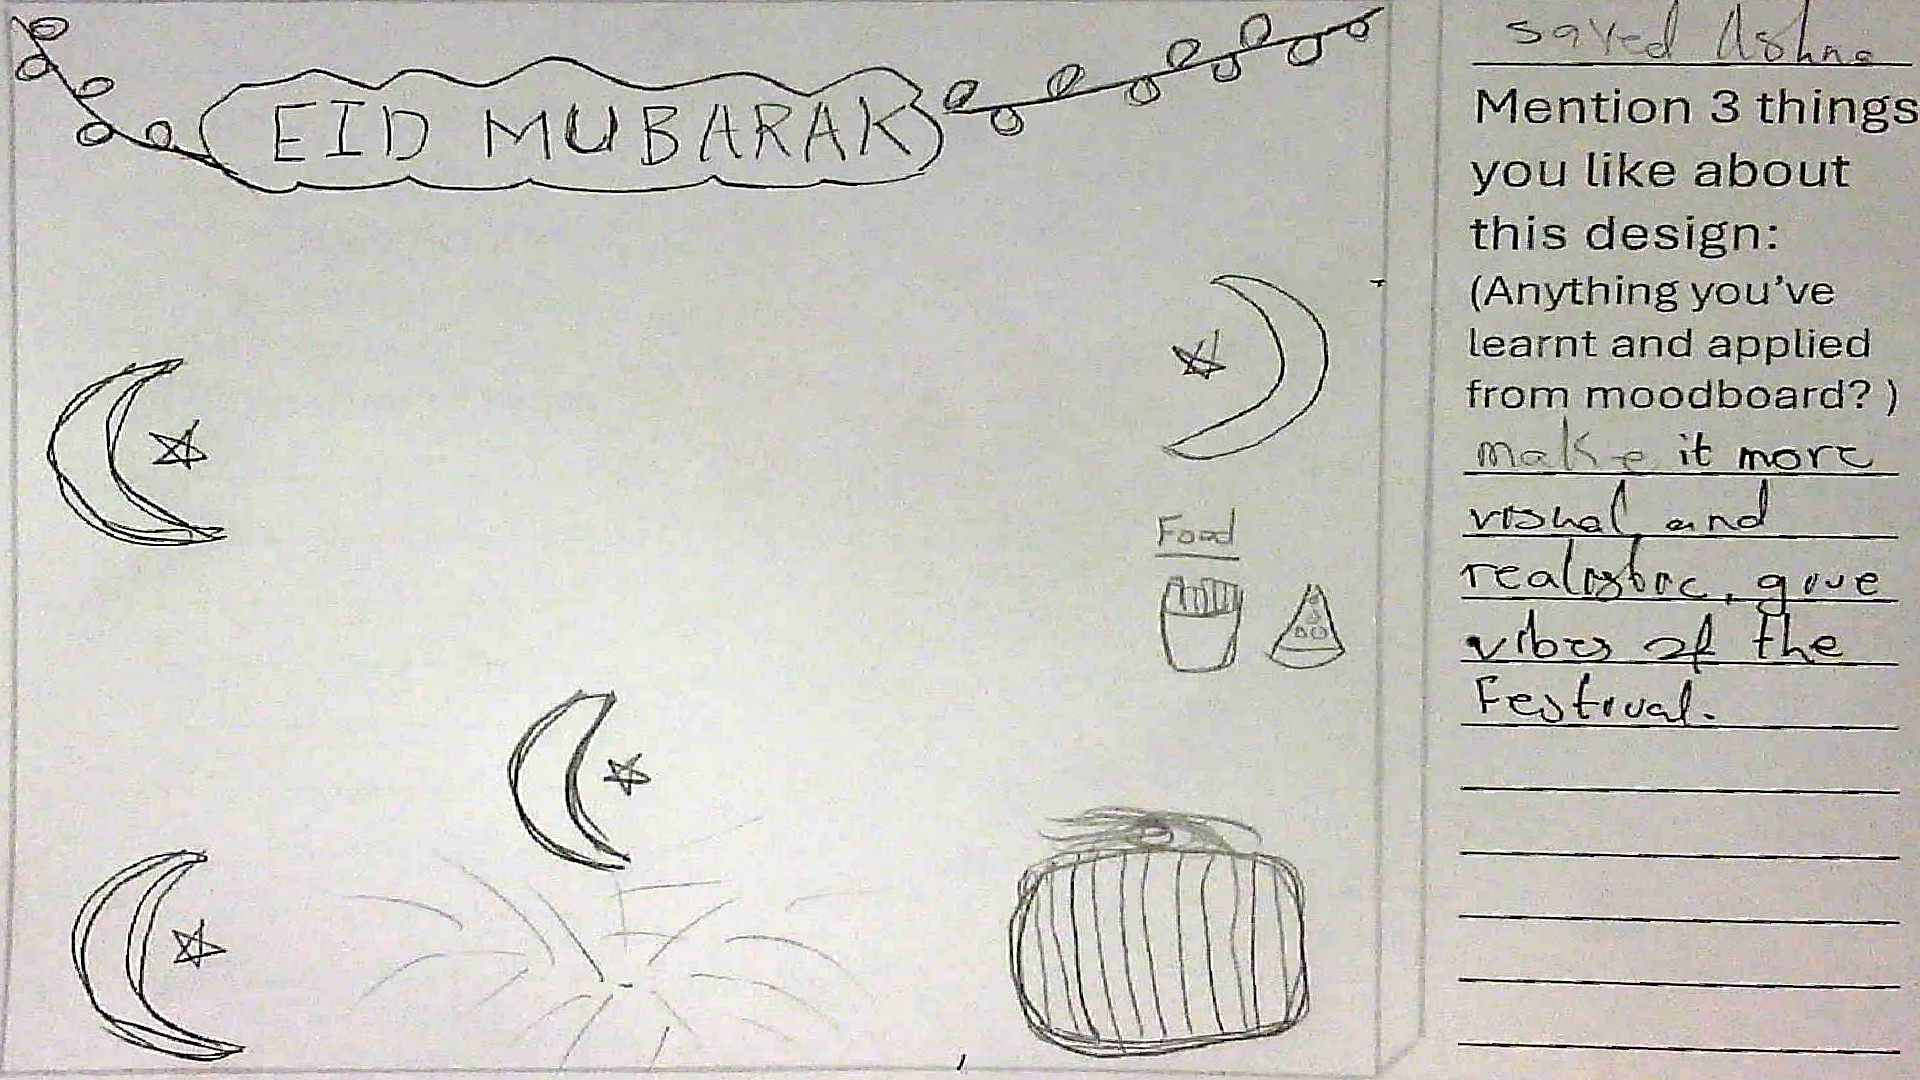 EID MUBARAK
Food
Sayed Ashna
Mention 3 things
you like about
this design:
(Anything you've
learnt and applied
from moodboard? )
make it more
visual and
realistic, give
vibes of the
Festival.